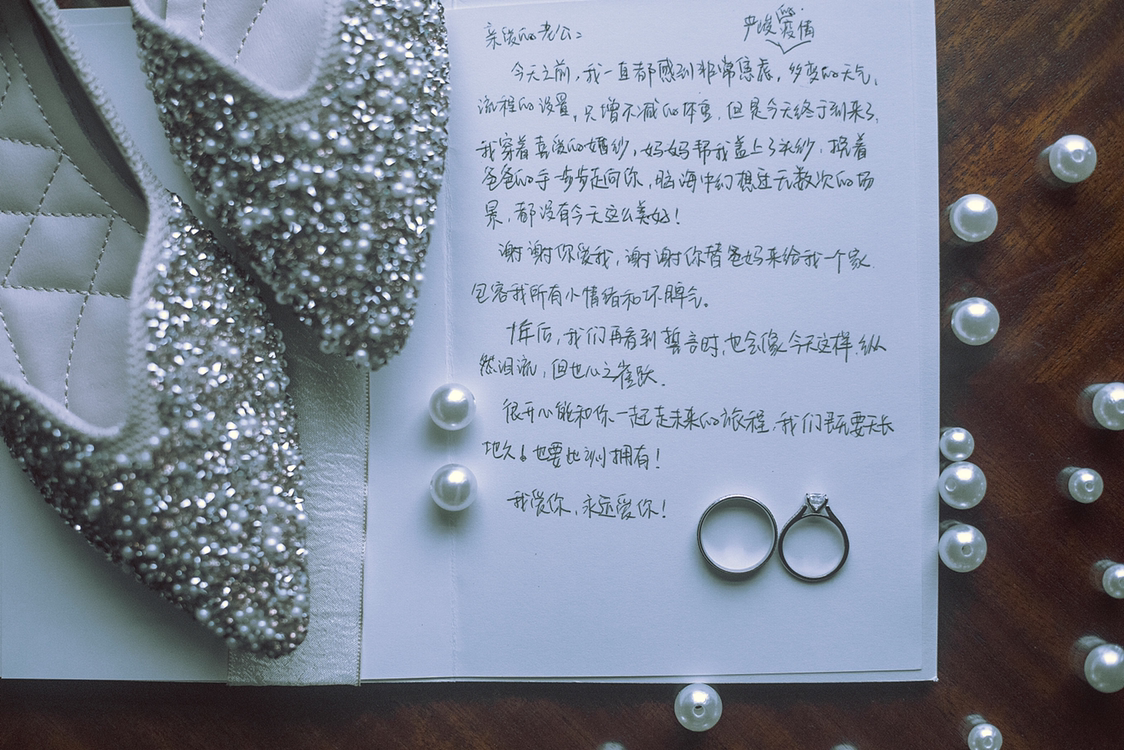 亲爱的老公：
严峻疫情
今天之前，我一直都感到非常焦虑，多变的天气，
流程的设置，只增不减的体重，但是今天终于到来了，
我穿着喜爱的婚纱，妈妈帮我盖上了头纱，挽着
爸爸的手一步步走向你，脑海中幻想过无数次的场
景，都没有今天这么美好！
谢谢你爱我，谢谢你替爸妈来给我一个家，
包容我所有小情绪和坏脾气。
十年后，我们再看到誓言时，也会像今天这样，纵
然泪流，但也心之雀跃。
很开心能和你一起走未来的旅程，我们既要天长
地久，也要此刻拥有！
我爱你，永远爱你！